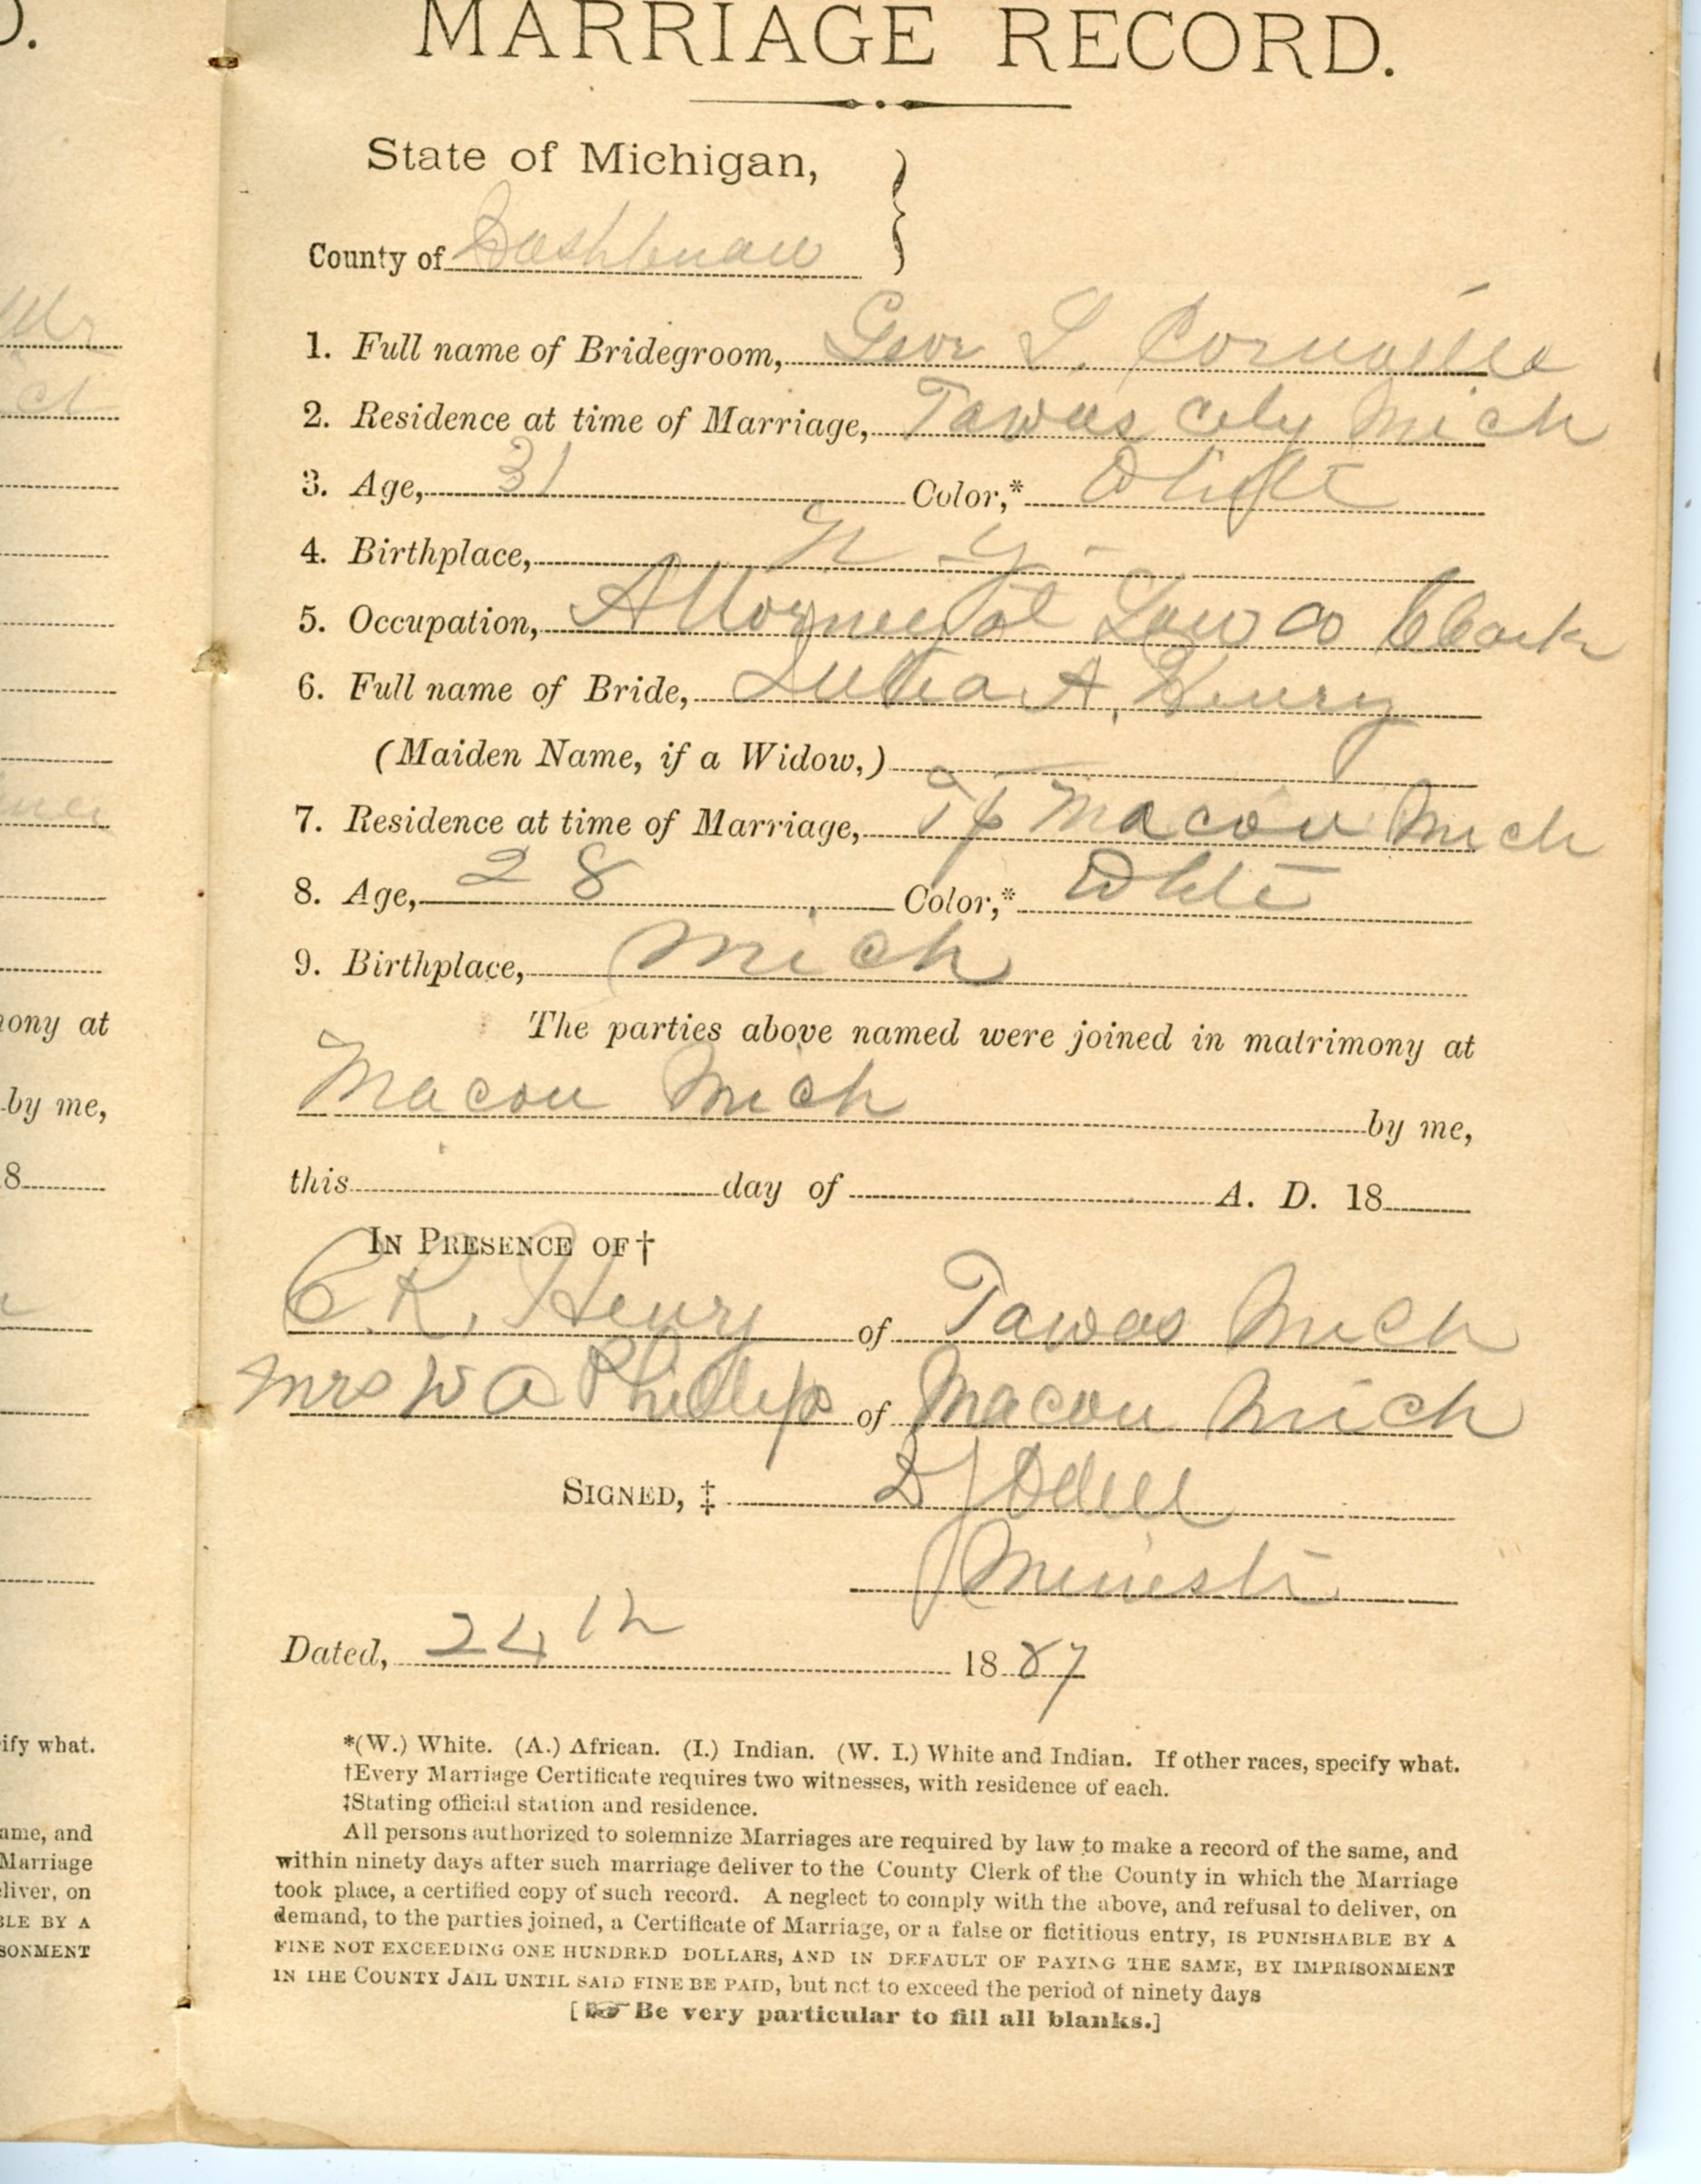 D.
MARRIAGE RECORD.
State of Michigan,
County of Washtenaw
1. Full name of Bridegroom, Geor L. Cornville
2. Residence at time of Marriage, Tawas City Mich
3. Age, 31 Color,* White
4. Birthplace, N Y
5. Occupation, Attorney at Law Co Clark
6. Full name of Bride, A. Henry
(Maiden Name, if a Widow,)
7. Residence at time of Marriage, Tp Macon Mich
8. Age, 28 Color,* White
9. Birthplace, Mich
The parties above named were joined in matrimony at
Macon Mich by me,
this day of A. D. 18
IN PRESENCE OF †
C. K. Henry of Tawas Mich
Mrs W A Phillips of Macon Mich
SIGNED, ‡ D J Odell
Minister
Dated, 24th 1887
*(W.) White. (A.) African. (I.) Indian. (W. I.) White and Indian. If other races, specify what.
†Every Marriage Certificate requires two witnesses, with residence of each.
‡Stating official station and residence.
All persons authorized to solemnize Marriages are required by law to make a record of the same, and
within ninety days after such marriage deliver to the County Clerk of the County in which the Marriage
took place, a certified copy of such record. A neglect to comply with the above, and refusal to deliver, on
demand, to the parties joined, a Certificate of Marriage, or a false or fictitious entry, IS PUNISHABLE BY A
FINE NOT EXCEEDING ONE HUNDRED DOLLARS, AND IN DEFAULT OF PAYING THE SAME, BY IMPRISONMENT
IN THE COUNTY JAIL UNTIL SAID FINE BE PAID, but not to exceed the period of ninety days
[☞ Be very particular to fill all blanks.]